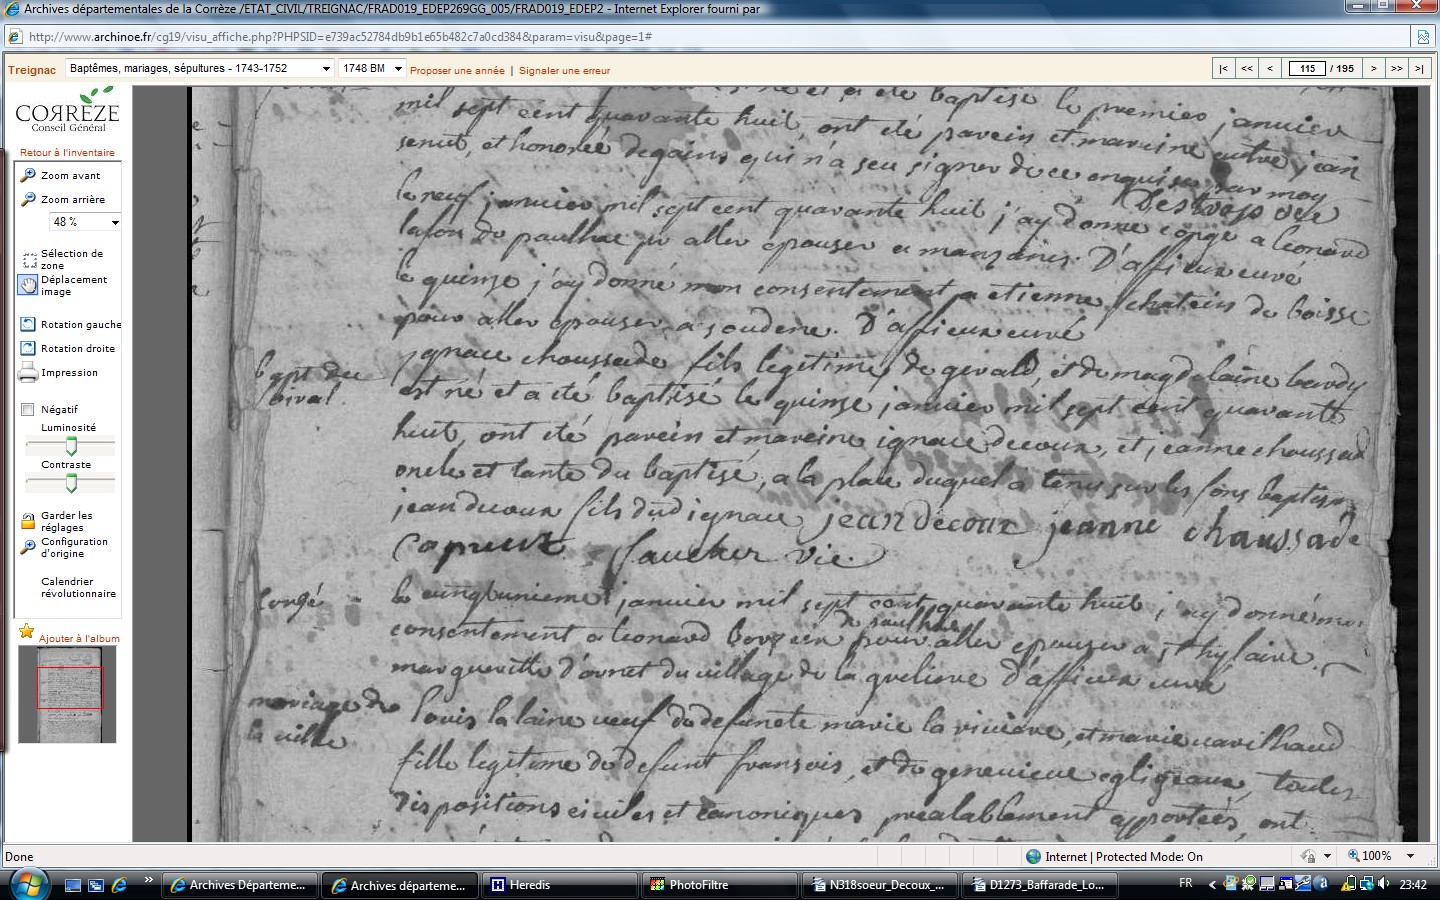 Archives départementales de la Corrèze /ETAT_CIVIL/TREIGNAC/FRAD019_EDEP269GG_005/FRAD019_EDEP2 - Internet Explorer fourni par
http://www.archinoe.fr/cg19/visu_affiche.php?PHPSID=e739ac52784db9b1e65b482c7a0cd384&param=visu&page=1#
Treignac Baptêmes, mariages, sépultures - 1743-1752 1748 BM Proposer une année | Signaler une erreur |< << < 115 / 195 > >> >|
CORRÈZE
Conseil Général
Retour à l'inventaire
Zoom avant
Zoom arrière
48 %
Sélection de
zone
Déplacement
image
Rotation gauche
Rotation droite
Impression
Négatif
Luminosité
Contraste
Garder les
réglages
Configuration
d'origine
Calendrier
révolutionnaire
Ajouter à l'album
et a été baptisé le premier janvier
mil sept cent quarante huit, ont été parein et mareine autre jean
senut, et honorée degains qui n'a seu signer de ce enquise par moy
le neuf janvier mil sept cent quarante huit j'ay donné congé a leonard
lafon de paulhac pr aller epouser a D'affieux curé
le quinze j'ay donné mon consentement a etienne chatein de boisse
pour aller epouser a soudene. D'affieux curé
bapt du
ignace choussade fils legitime de girald, et de magdelaine
est né et a été baptisé le quinze janvier mil sept cent quarante
huit, ont été parein et mareine ignace decoux, et jeanne choussade
oncle et tante du baptisé, a la place duquel a tenu sur les fons baptism
jean decoux fils dud ignace jean decoux jeanne chaussade
faucher vic.
congé
le vingtunieme janvier mil sept cent quarante huit j'ay donné mon
de paulhac
consentement a leonard pour aller epouser a st hylaire
margueritte d'ornet du village de la D'affieux curé
mariage de
la ville
louis la laine veuf de defuncte marie la viviere, et marie
fille legitime de defunt fransois, et de genevieve egligeaux, toutes
dispositions civiles et canoniques prealablement apportées, ont
Done
Internet | Protected Mode: On
100%
Archives Départeme...
Archives départeme...
Heredis
PhotoFiltre
N318soeur_Decoux_...
D1273_Baffarade_Lo...
FR
23:42